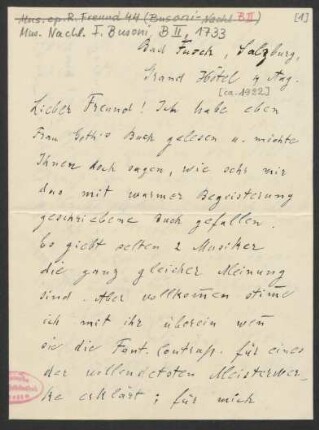 Mus. ep. R. Freund 44 (Busoni-Nachl. B II)
[1]
Mus. Nachl. F. Busoni, B II, 1733
Bad Fusch, Salzburg,
Grand Hôtel 4 Aug.
[ca. 1922]
Lieber Freund! Ich habe eben
Frau Buch gelesen u. möchte
Ihnen doch sagen, wie sehr mir
das mit warmer Begeisterung
geschriebene Buch gefallen.
Es giebt selten 2 Musiker
die ganz gleicher Meinung
sind. Aber vollkom̄en stim̄e
ich mit ihr überein wen̄
sie die Fant. Contrap. für eines
der vollendetsten Meisterwer-
ke erklärt; für mich